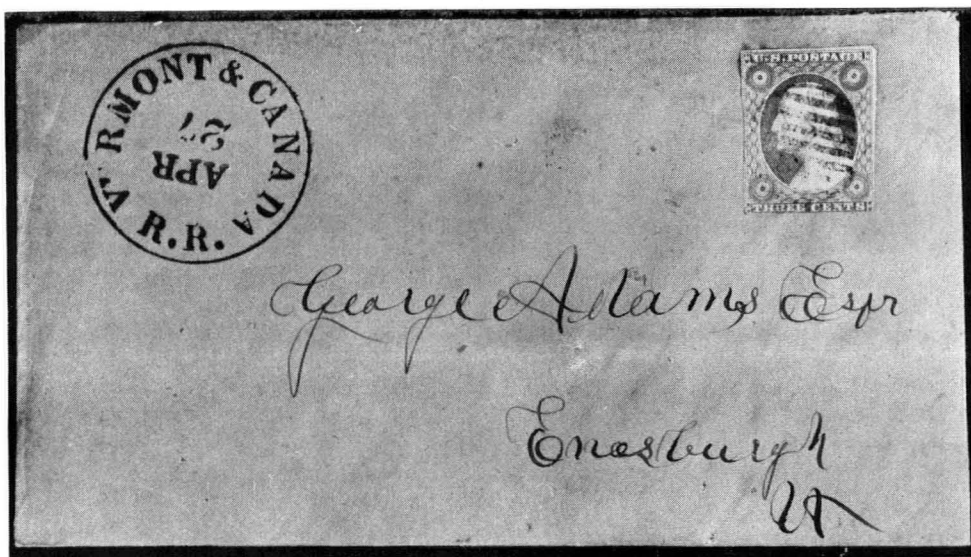 V. RMONT & CANADA
R.R.
APR
27
U.S. POSTAGE
THREE CENTS
George Adams Esqr
Enosburgh
Vt